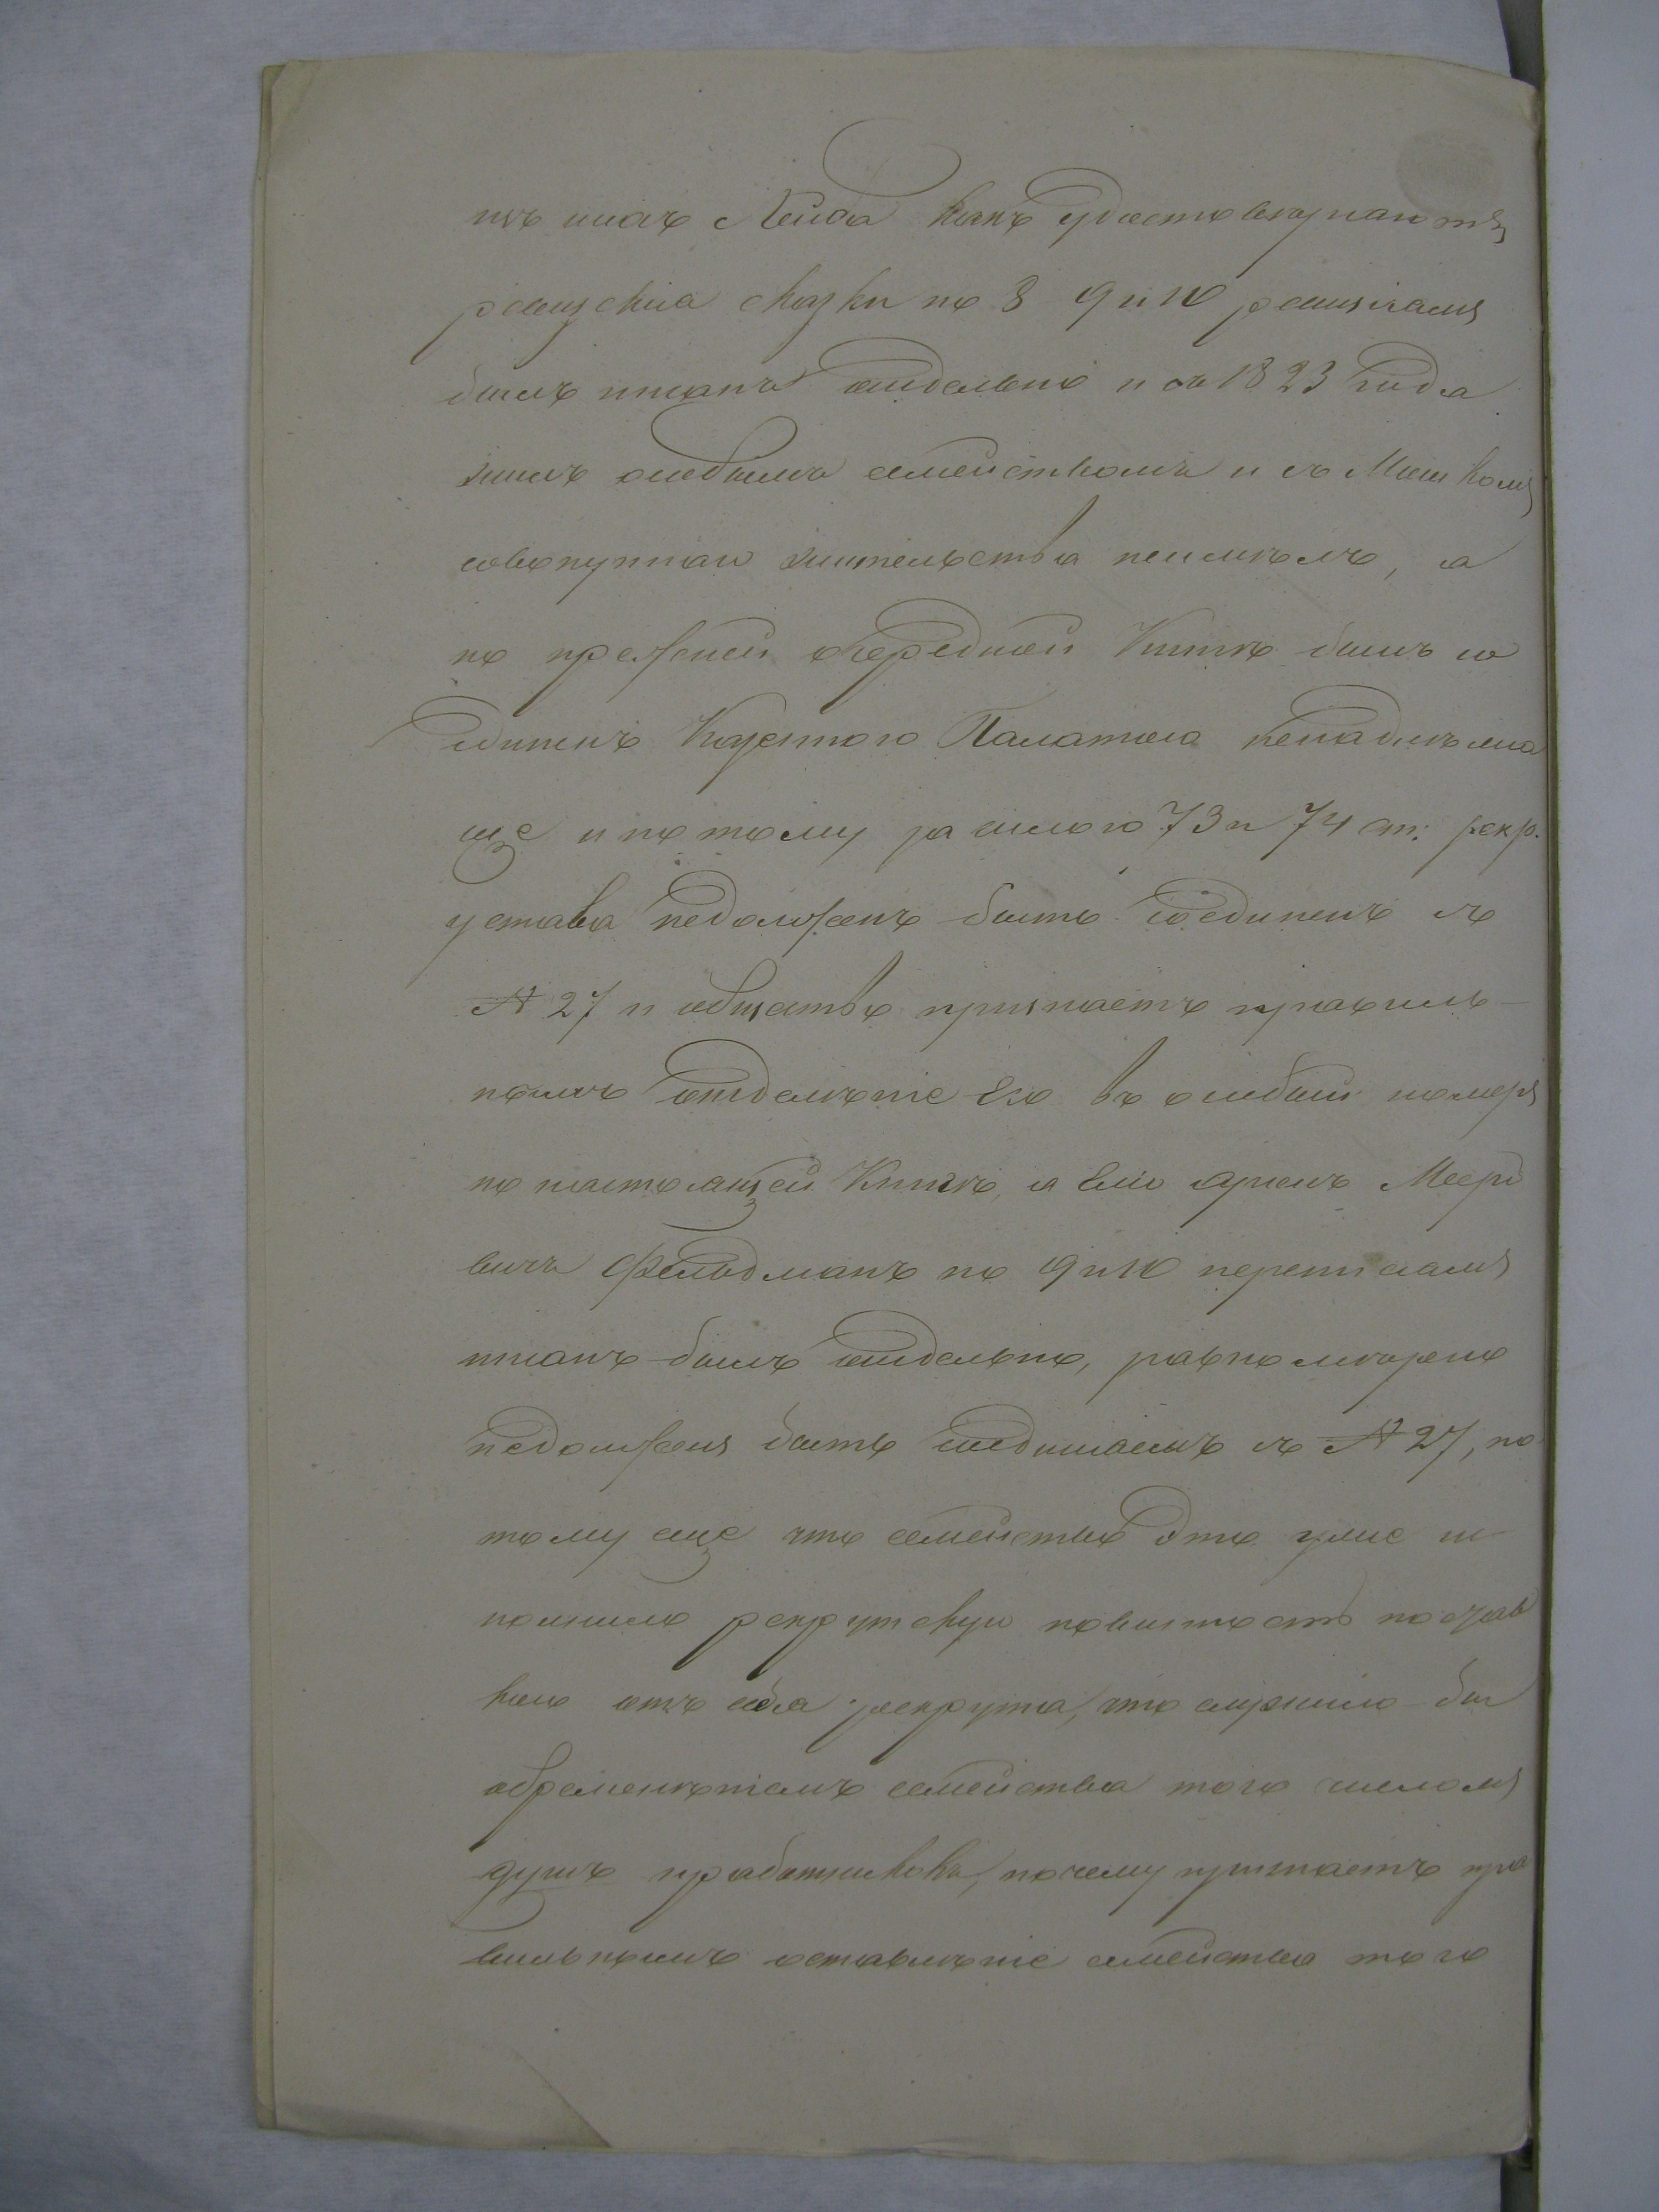 нъ инахъ Лейба какъ удостовѣряютъ
ревизскія сказки по 8 9 и 10 ревизіямъ
былъ писанъ отдельно и съ 1823 года
жилъ особымъ семействомъ и съ Мошкомъ
совокупнаго жительства неимѣлъ, а
по прежней очередной Книгѣ былъ со
единенъ Казенною Палатою ненадлежа
ще и потому за силою 73 и 74 ст: рекр.
устава недолженъ быть соединенъ съ
№ 27 и общество признаетъ правиль-
нымъ отдѣленіе Его въ особый номеръ
по настоящей Книгѣ, а Еліо Аронъ Мееро
вичъ Фельдманъ по 9 и 10 переписямъ
писанъ былъ отдельно, равномѣрно
недолженъ быть соединяемъ съ № 27, по
тому еще что семейство это уже ис
полнило рекрутскую повинность постав
кою отъ себя рекрута, что служило бы
обремененіемъ семейства того числомъ
душъ и работниковъ, почему признаетъ пра
вильнымъ оставленіе семейство того